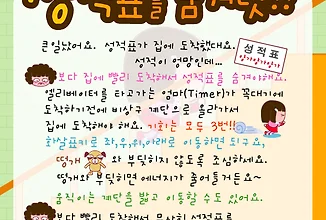 성적표를 숨겨랏!!
큰일났어요. 성적표가 집에 도착했다요.
성적이 엉망인데...
성적표
양가양가양가
보다 집에 빨리 도착해서 성적표를 숨겨야해요.
엘리베이터를 타고가는 엄마(Timer)가 꼭대기에
도착하기전에 비상구 계단으로 올라가서
집에 도착해야 해요. 기회는 모두 3번!!
화살표키로 좌,우,위,아래로 이동하면 되구요,
떵개 와 부딪히지 않도록 조심하세요.
떵개와 부딪히면 에너지가 줄어들거든요~
움직이는 계단을 밟고 이동할 수도 있어요.
보다 빨리 도착해서 무사히 성적표를